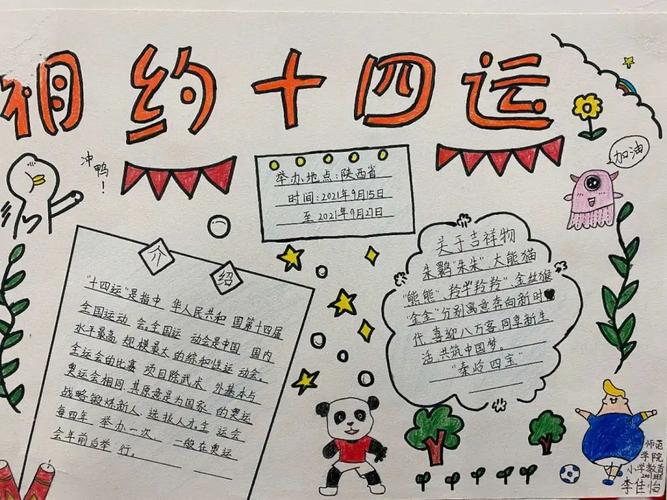 相约十四运
冲鸭！
举办地点：陕西省
时间：2021年9月15日
至2021年9月27日
加油
介绍
"十四运"是指中华人民共和国第十四届
全国运动会。全国运动会是中国国内
水平最高规模最大的综合性运动会。
全运会的比赛项目除武术外基本与
奥运会相同其原意是为国家的奥运
战略锻炼新人选拔人才全运会
每四年举办一次，一般在奥运
会年前后举行。
关于吉祥物
朱鹮"朱朱"大熊猫
"熊熊"、羚牛"羚羚"、金丝猴
"金金"分别寓意奔向新时
代、喜迎八方客、同享新生
活、共筑中国梦。
"秦岭四宝"
师范
学院
小学教育
李佳怡